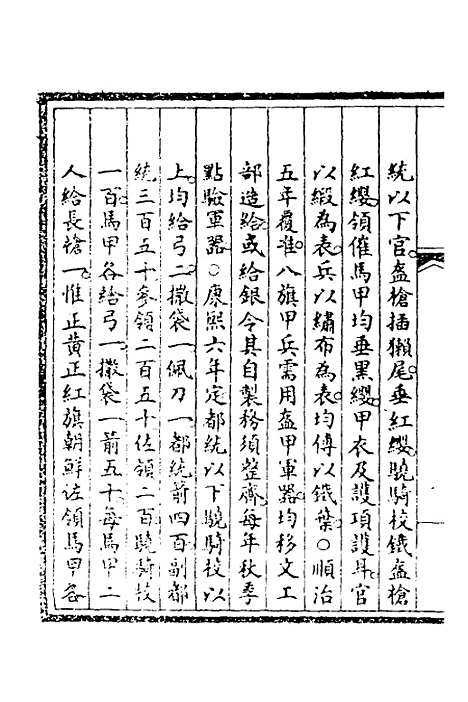 統以下官盔槍插獺尾垂紅纓驍騎校鐵盔槍
紅纓領催馬甲均垂黒纓甲衣及護項護耳官
以緞為表兵以繡布為表均傅以鐵葉○順治
五年覆准八旗甲兵需用盔甲軍器均移文工
部造給或給銀令其自製務須整齊每年秋季
點驗軍器○康熙六年定都統以下驍騎校以
上均給弓二撒袋一佩刀一都統箭四百副都
統三百五十參領二百五十佐領二百驍騎校
一百馬甲各給弓一撒袋一箭五十每馬甲二
人給長槍一惟正黄正紅旗朝鮮佐領馬甲各